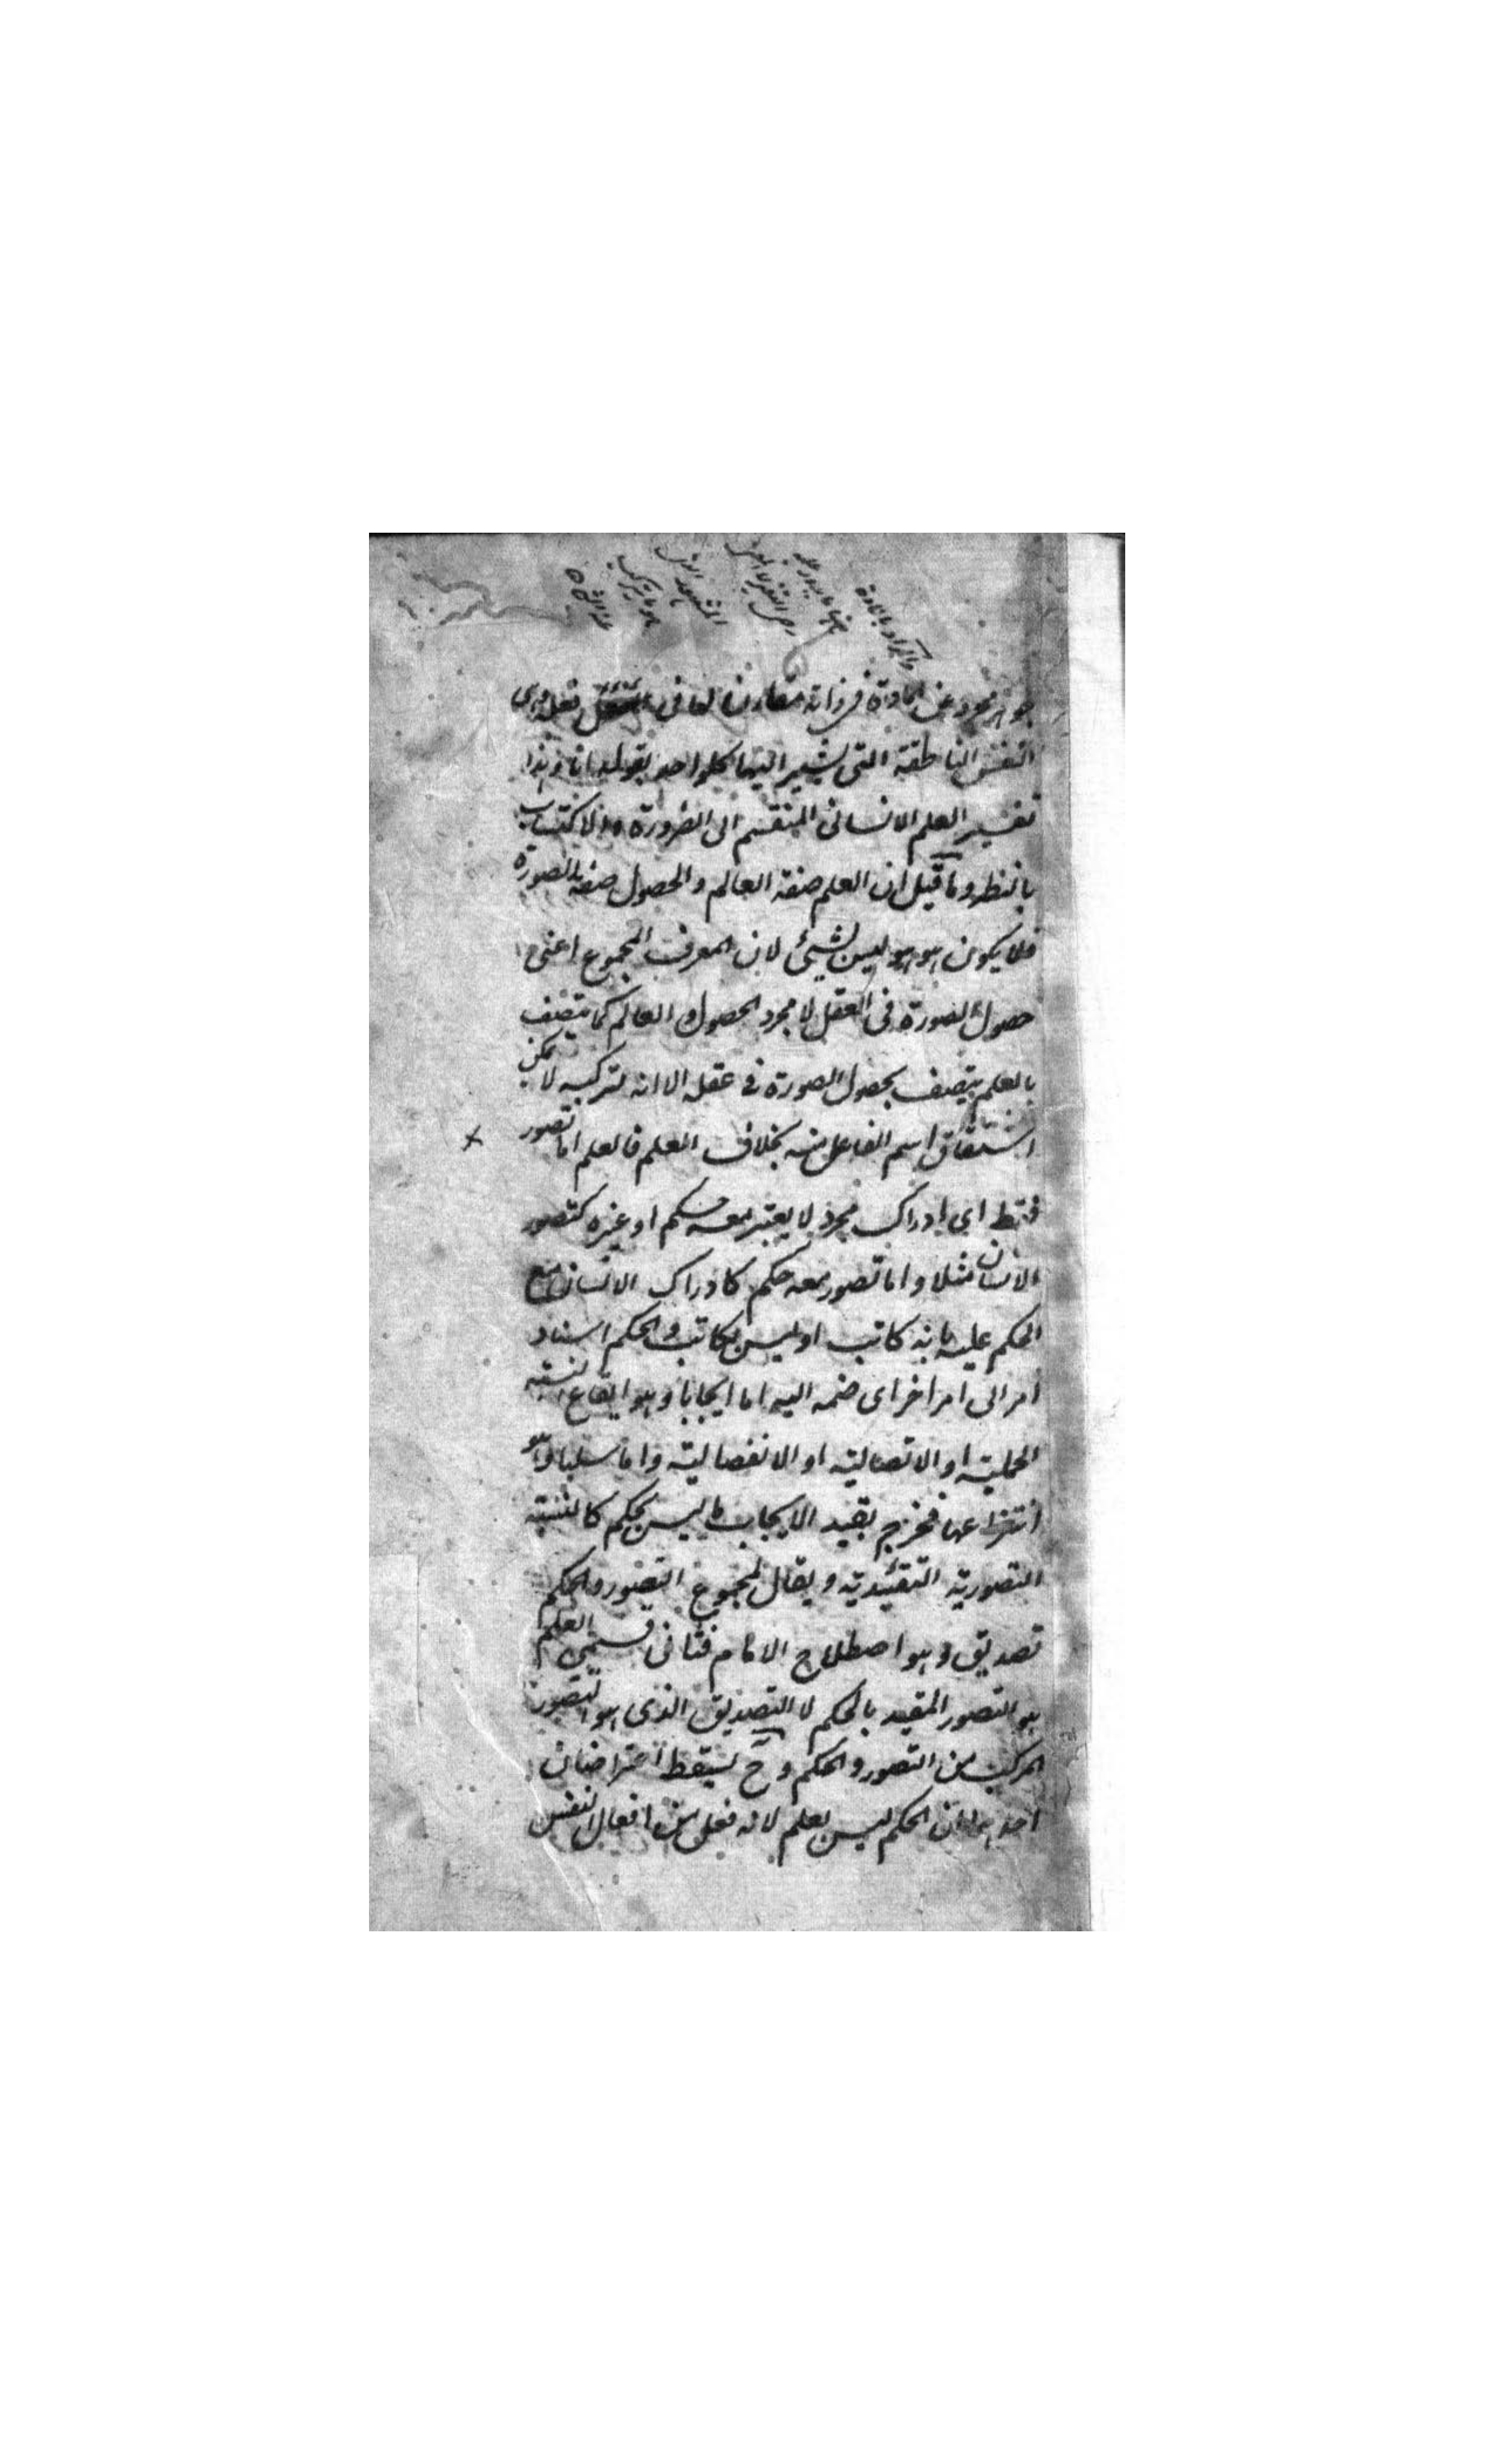 والمراد بالمادة
جوهر مجرد عن المادة في ذاته مقارن لها في فعله وهى
النفس الناطقة التى يشير اليها كل واحد بقوله انا وهذا
تفسير العلم الانسانى المنقسم الى الضرورة والاكتساب
بالنظر وما قيل ان العلم صفة العالم والحصول صفة الصورة
فلا يكون هو هو ليس بشيئ لان المعرف المجموع اعنى
حصول الصورة فى العقل لا مجرد الحصول والعالم كما يتصف
بالعلم يتصف بحصول الصورة في عقله الا انه لتركبه لا يمكن
اشتقاق اسم الفاعل منه بخلاف العلم فالعلم اما تصور
فقط اى ادراك مجرد لا يعتبر معه حكم او غيره كتصور
الانسان مثلا واما تصور معه حكم كادراك الانسان مع
الحكم عليه بانه كاتب او ليس بكاتب والحكم اسناد
امر الى امر اخر اى ضمه اليه اما ايجابا وهو ايقاع النسبة
الحملية او الاتصالية او الانفصالية واما سلبا وهو
انتزاعها فخرج بقيد الايجاب ما ليس بحكم كالنسبة
التصورية التقييدية ويقال لمجموع التصور والحكم
تصديق وهو اصطلاح الامام فثانى قسمى العلم
هو التصور المقيد بالحكم لا التصديق الذى هو التصور
المركب من التصور والحكم وح يسقط اعتراضان
احدهما ان الحكم ليس بعلم لانه فعل من افعال النفس